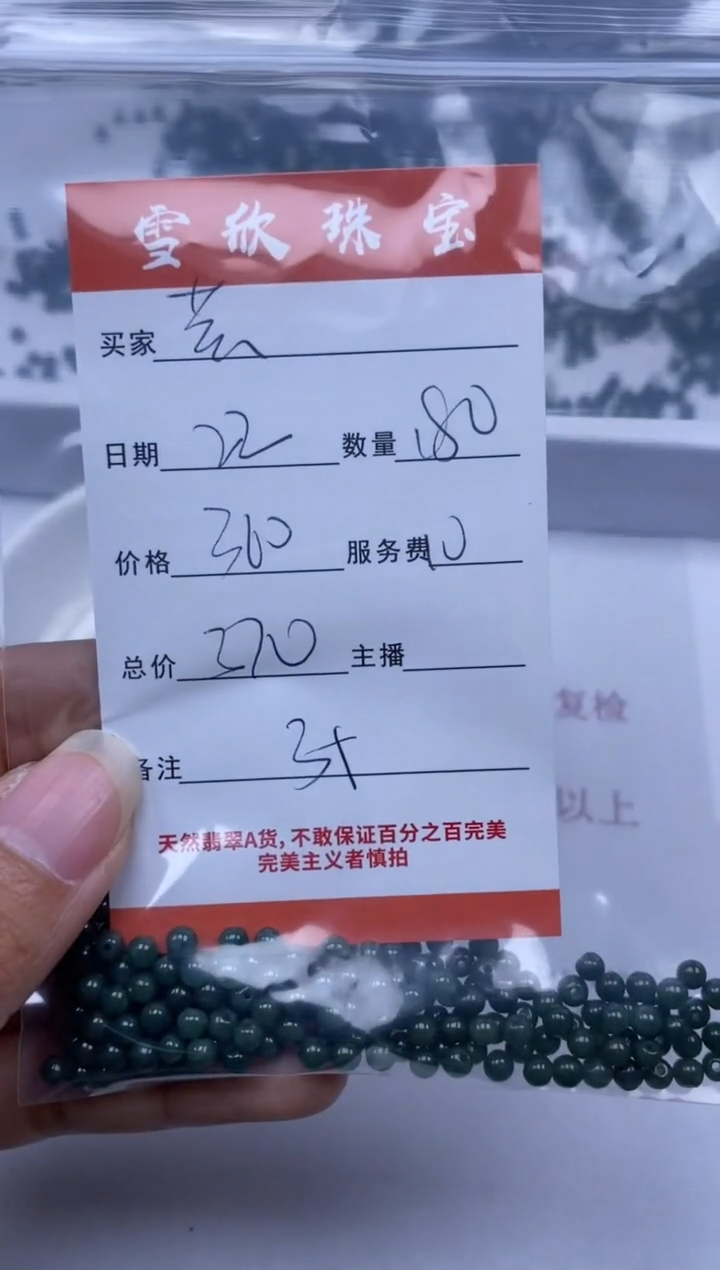 雪欣珠宝
买家 芸
日期 22 数量 180
价格 360 服务费 10
总价 370 主播
备注
天然翡翠A货,不敢保证百分之百完美
完美主义者慎拍
复检
以上